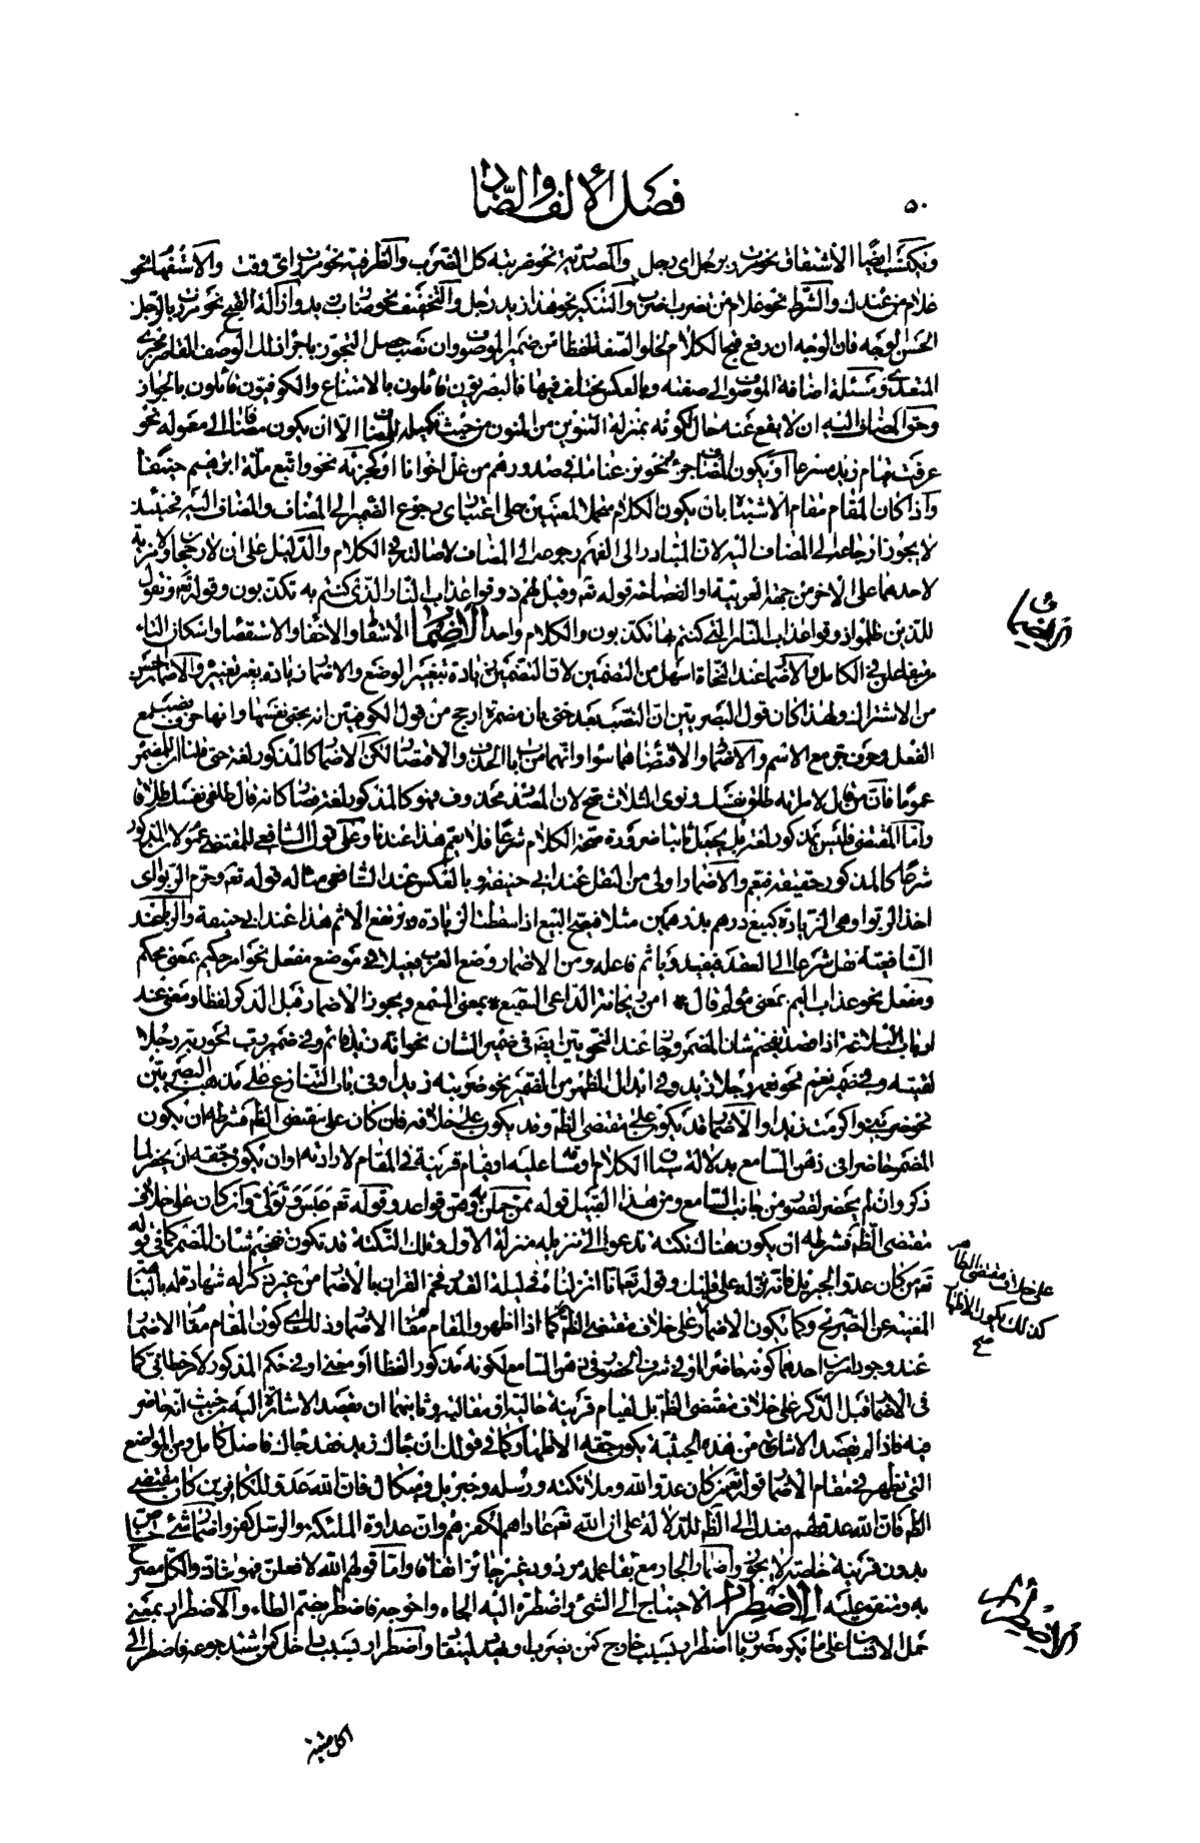 ٥٠
فصل الألف والضاد
ويكتسب ايضا الاشتقاق نحو مررت برجل اى رجل والمصدرية نحو ضربته كل الضرب والظرفية نحو مررت اى وقت والاستفهام نحو
غلام من عندك والشرط نحو غلام من تضرب اضرب والتنكير نحو هذا زيد رجل والتخفيف نحو ضارب زيد وازالة القبح نحو مررت بالرجل
الحسن الوجه فان الوجه ان رفع قبح الكلام لخلو الصفة لفظا من ضمير الموصوف وان نصب حصل التجوز باجرائك الوصف القاصر مجرى
المتعدى ومسئلة اضافة الموصوف الى صفته وبالعكس مختلف فيها فالبصريون قائلون بالامتناع والكوفيون قائلون بالجواز
وحق المضاف اليه ان لا يقع عنه حال لكونه بمنزلة التنوين من المنون من حيث تكميله للمضاف الا ان يكون مضافا الى معموله نحو
عرفت قيام زيد مسرعا او يكون المضاف جزئه نحو ونزعنا ما فى صدورهم من غل اخوانا او كجزئه نحو واتبع ملة ابرهيم حنيفا
واذا كان المقام مقام الاشتباه بان يكون الكلام محتملا لمعنيين على اعتبارى رجوع الضمير الى المضاف والمضاف اليه فحينئذ
لا يجوز ارجاعه الى المضاف اليه لان المتبادر الى الفهم رجوعه الى المضاف لاصالته فى الكلام والدليل على ان لا رجحان ولا مزية
لاحدهما على الاخر من جهة العربية او الفصاحة قوله تعم وقيل لهم ذوقوا عذاب النار الذى كنتم به تكذبون وقوله تعم ونقول
للذين ظلموا ذوقوا عذاب النار التى كنتم بها تكذبون والكلام واحد الاضمار الاسقاط والاخفا والاستقصا واسكان التاء
من متفاعلن فى الكامل والاضمار عند النحاة اسهل من التضمين لان التضمين زيادة بتغيير الوضع والاضمار زيادة بغير تغييره والاضمار احسن
من الاشتراك ولهذا كان قول البصريين ان النصب بعد حتى بان مضمرة ارجح من قول الكوفيين انه بحتى نفسها وانها حرف نصب مع
الفعل وحرف جر مع الاسم والاضمار والاقتضا هما سواء وانهما من باب الحذف والاختصار لكن الاضمار كالمذكور لغة حتى قلنا ان للمضمر
عموما فان من قال لامراته طلقى نفسك ونوى الثلاث صح لان المصدر محذوف فهو كالمذكور لغة فصار كانه قال طلقى نفسك طلاقا
واما المقتضى فليس بمذكور لغة بل يجعل ثابتا ضرورة صحة الكلام شرعا فلا يعم هذا عندنا وعلى قول الشافعى للمقتضى عموم لان المذكور
شرعا كالمذكور حقيقة فيعم والاضمار اولى من النقل عند ابى حنيفة وبالعكس عند الشافعى مثاله قوله تعم وحرم الربوا اى
اخذ الربوا وهى الزيادة كبيع درهم بدرهمين مثلا فيصح البيع اذا سقطت الزيادة ويرتفع الاثم هذا عند ابى حنيفة والربا عند
الشافعية نقل شرعا الى العقد فيفسد ويأثم فاعله ومن الاضمار وضع العرب فعيلا فى موضع مفعل نحو امر حكيم بمعنى محكم
ومفعل نحو عذاب اليم بمعنى مؤلم قال * امن ريحانة الداعى السميع * بمعنى المسمع ويجوز الاضمار قبل الذكر لفظا ومعنى عند
ارباب البلاغة اذا قصد تفخيم شان المضمر ويجوز عند النحويين ايضا فى ضمير الشان نحو انه زيد قائم وفى ضمير رب نحو ربه رجلا
لقيته وفى ضمير نعم نحو نعم رجلا زيد وفى ابدال المظهر من المضمر نحو ضربته زيدا وفى باب التنازع على مذهب البصريين
نحو ضربنى واكرمت زيدا والاضمار قد يكون على مقتضى الظم وقد يكون على خلافه فان كان على مقتضى الظم فشرطه ان يكون
المضمر حاضرا فى ذهن السامع بدلالة سياق الكلام او مساقه عليه او قيام قرينة فى المقام لارادته او ان يكون حقه ان يحضر لما
ذكر وان لم يحضر لقصور من جانب السامع ومن هذا القبيل قوله ممن حملن به وهن عواقد وقوله تعم عبس وتولى وان كان على خلاف
مقتضى الظم فشرطه ان يكون هناك نكتة تدعو الى تنزيله منزلة الاول وتلك النكتة قد تكون تفخيم شان المضمر كما فى قوله
تعم من كان عدوا لجبريل فانه نزله على قلبك وقوله تعم انا انزلناه فى ليلة القدر فخم القران بالاضمار من غير ذكر له شهادة له بالنباهة
المغنية عن التصريح وكما يكون الاضمار على خلاف مقتضى الظم كما اذا اظهر والمقام مقام الاضمار وذلك اى كون المقام مقام الاضمار
عند وجود امرين احدهما كونه حاضرا او فى شرف الحضور فى ذهن السامع لكونه مذكورا لفظا او معنى او فى حكم المذكور لامر خطابى كما
فى الاضمار قبل الذكر على خلاف مقتضى الظم بل لقيام قرينة حالية او مقالية وثانيهما ان يقصد الاشارة اليه من حيث انه حاضر
فيه فاذا لم يقصد الاشارة من هذه الحيثية يكون حقه الاظهار كما فى قولك ان جاءك زيد فقد جاءك فاضل كامل ومن المواضع
التى تظهر فى مقام الاضمار قوله تعم من كان عدوا لله وملائكته ورسله وجبريل وميكال فان الله عدو للكافرين كان مقتضى
الظم فان الله عدو لهم فعدل الى الظم للدلالة على ان الله تعم عاداهم لكفرهم وان عداوة الملئكة والرسل كفر واضمار شئ خاص
بدون قرينة خاصة لا يجوز واضمار الجار مع بقاء عمله مردود غير جائز اتفاقا واما قولهم الله لافعلن فهو شاذ والكل مصرح
به ومتفق عليه الاضطرار الاحتياج الى الشئ واضطره اليه الجاه واحوجه فاضطر بضم الطاء والاضطرار بمعنى
حمل الانسان على ما يكره ضربان اضطرار بسبب خارج كمن يضرب او يهدد لينقاد واضطرار بسبب داخل كمن اشتد جوعه فاضطر الى
الاضمار
على خلاف مقتضى الظاهر
كذلك يكون الاظهار
صح
الاضطرار
اكل ميتة